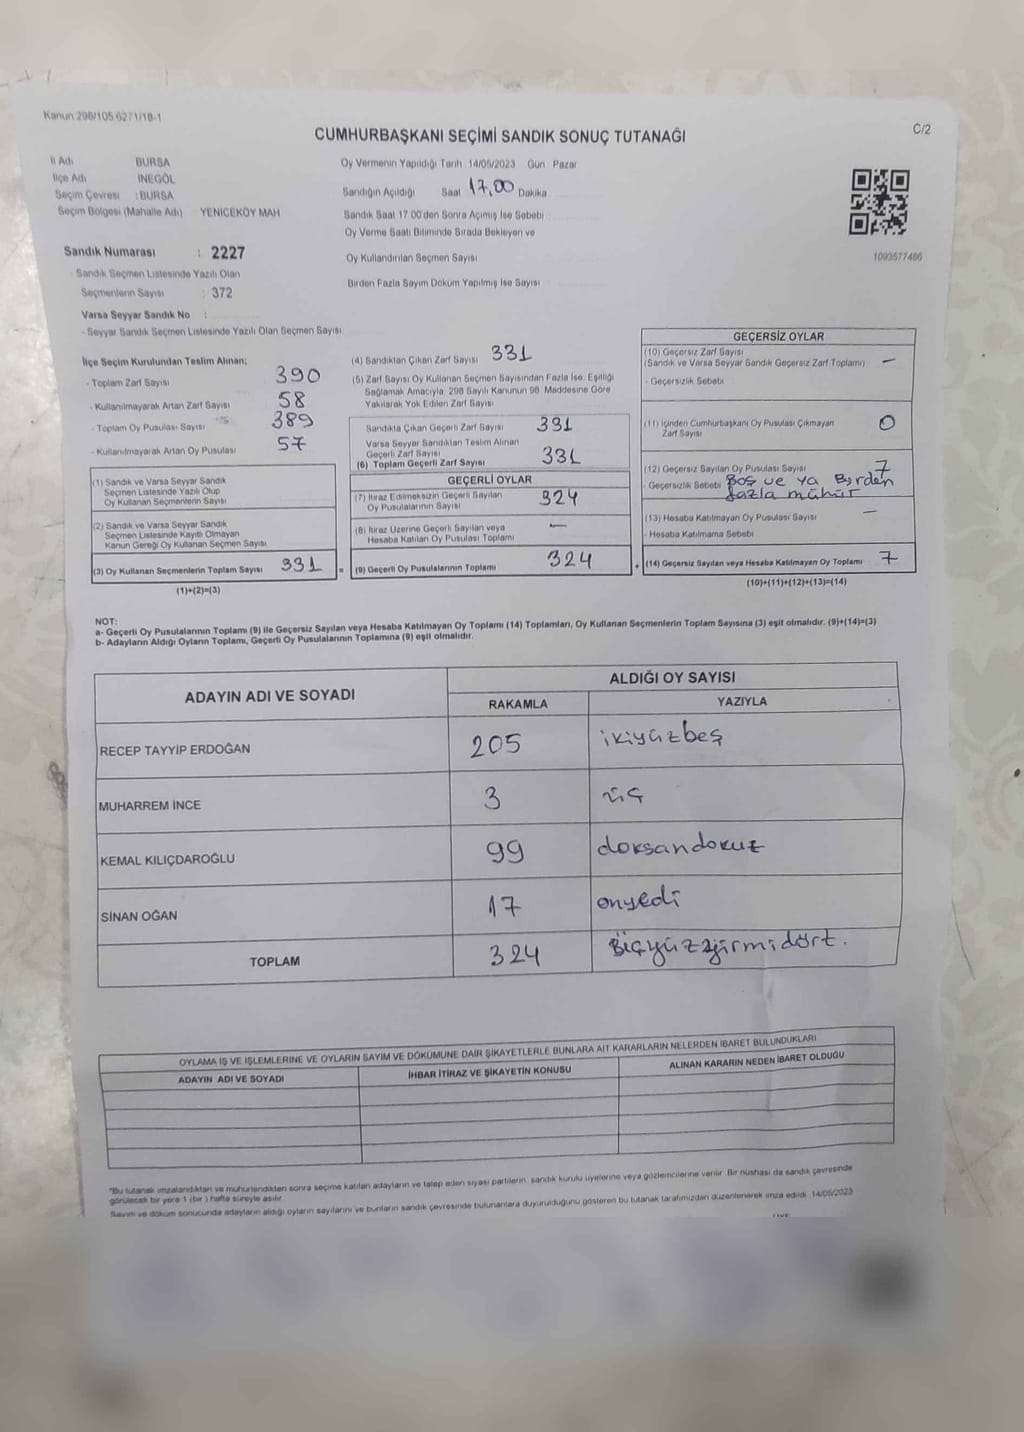 Kanun:298/105.6271/18-1
C/2
CUMHURBAŞKANI SEÇİMİ SANDIK SONUÇ TUTANAĞI
İl Adı BURSA
İlçe Adı İNEGÖL
Seçim Çevresi : BURSA
Seçim Bölgesi (Mahalle Adı) YENİCEKÖY MAH
Sandık Numarası : 2227
- Sandık Seçmen Listesinde Yazılı Olan
Seçmenlerin Sayısı : 372
Varsa Seyyar Sandık No :
- Seyyar Sandık Seçmen Listesinde Yazılı Olan Seçmen Sayısı
Oy Vermenin Yapıldığı Tarih 14/05/2023 Gün Pazar
Sandığın Açıldığı Saat 17,00 Dakika
Sandık Saat 17.00'den Sonra Açımış İse Sebebi
Oy Verme Saati Bitiminde Sırada Bekleyen ve
Oy Kullandırılan Seçmen Sayısı
Birden Fazla Sayım Döküm Yapılmış İse Sayısı
1093577486
İlçe Seçim Kurulundan Teslim Alınan;
- Toplam Zarf Sayısı 390
- Kullanılmayarak Artan Zarf Sayısı 58
- Toplam Oy Pusulası Sayısı 389
- Kullanılmayarak Artan Oy Pusulası 57
(1) Sandık ve Varsa Seyyar Sandık
Seçmen Listesinde Yazılı Olup
Oy Kullanan Seçmenlerin Sayısı
(2) Sandık ve Varsa Seyyar Sandık
Seçmen Listesinde Kayıtlı Olmayan
Kanun Gereği Oy Kullanan Seçmen Sayısı
(3) Oy Kullanan Seçmenlerin Toplam Sayısı 331
(1)+(2)=(3)
=
(4) Sandıktan Çıkan Zarf Sayısı 331
(5) Zarf Sayısı Oy Kullanan Seçmen Sayısından Fazla İse; Eşitliği
Sağlamak Amacıyla, 298 Sayılı Kanunun 98. Maddesine Göre
Yakılarak Yok Edilen Zarf Sayısı
Sandıkta Çıkan Geçerli Zarf Sayısı 331
Varsa Seyyar Sandıktan Teslim Alınan
Geçerli Zarf Sayısı
(6) Toplam Geçerli Zarf Sayısı 331
GEÇERLİ OYLAR
(7) İtiraz Edilmeksizin Geçerli Sayılan
Oy Pusulalarının Sayısı 324
(8) İtiraz Üzerine Geçerli Sayılan veya
Hesaba Katılan Oy Pusulası Toplamı —
(9) Geçerli Oy Pusulalarının Toplamı 324
+
GEÇERSİZ OYLAR
(10) Geçersiz Zarf Sayısı
(Sandık ve Varsa Seyyar Sandık Geçersiz Zarf Toplamı) —
- Geçersizlik Sebebi
(11) İçinden Cumhurbaşkanı Oy Pusulası Çıkmayan
Zarf Sayısı 0
(12) Geçersiz Sayılan Oy Pusulası Sayısı 7
- Geçersizlik Sebebi Boş ve ya Birden
fazla mühür
(13) Hesaba Katılmayan Oy Pusulası Sayısı —
- Hesaba Katılmama Sebebi
(14) Geçersiz Sayılan veya Hesaba Katılmayan Oy Toplamı 7
(10)+(11)+(12)+(13)=(14)
NOT:
a- Geçerli Oy Pusulalarının Toplamı (9) ile Geçersiz Sayılan veya Hesaba Katılmayan Oy Toplamı (14) Toplamları, Oy Kullanan Seçmenlerin Toplam Sayısına (3) eşit olmalıdır. (9)+(14)=(3)
b- Adayların Aldığı Oyların Toplamı, Geçerli Oy Pusulalarının Toplamına (9) eşit olmalıdır.
ADAYIN ADI VE SOYADI ALDIĞI OY SAYISI
RAKAMLA YAZIYLA
RECEP TAYYİP ERDOĞAN 205 ikiyüzbeş
MUHARREM İNCE 3 üç
KEMAL KILIÇDAROĞLU 99 doksandokuz
SİNAN OĞAN 17 onyedi
TOPLAM 324 üçyüzyirmidört.
OYLAMA İŞ VE İŞLEMLERİNE VE OYLARIN SAYIM VE DÖKÜMÜNE DAİR ŞİKAYETLERLE BUNLARA AİT KARARLARIN NELERDEN İBARET BULUNDUKLARI
ADAYIN ADI VE SOYADI İHBAR İTİRAZ VE ŞİKAYETİN KONUSU ALINAN KARARIN NEDEN İBARET OLDUĞU
*Bu tutanak imzalandıktan ve mühürlendikten sonra seçime katılan adayların ve talep eden siyasi partilerin, sandık kurulu üyelerine veya gözlemcilerine verilir. Bir nüshası da sandık çevresinde
görülecek bir yere 1 (bir ) hafta süreyle asılır.
Sayım ve döküm sonucunda adayların aldığı oyların sayılarını ve bunların sandık çevresinde bulunanlara duyurulduğunu gösteren bu tutanak tarafımızdan düzenlenerek imza edildi. 14/05/2023